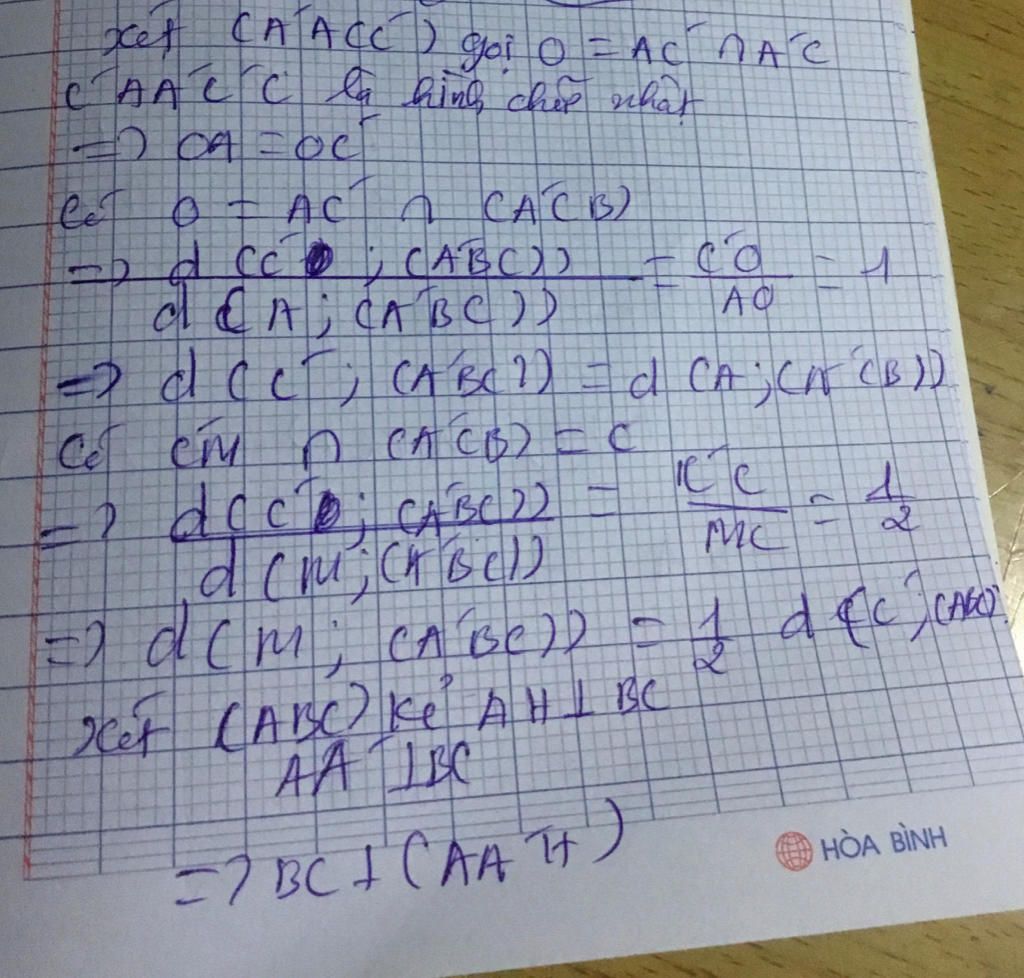 Xét (A'ACC') gọi O = AC' ∩ A'C
C' AA'C'C là hình chữ nhật
=> OA = OC'
Có O = AC' ∩ (A'CB)
=> d(C'; (A'BC)) / d(A; (A'BC)) = C'O / AO = 1
=> d(C'; (A'BC)) = d(A; (A'CB))
Có C'M ∩ (A'CB) = C
=> d(C'; (A'BC)) / d(M; (A'BC)) = C'C / MC = 1/2
=> d(M; (A'BC)) = 1/2 d(C'; (A'BC))
Xét (ABC) kẻ AH ⊥ BC
AA' ⊥ BC
=> BC ⊥ (AA'H)
HÒA BÌNH